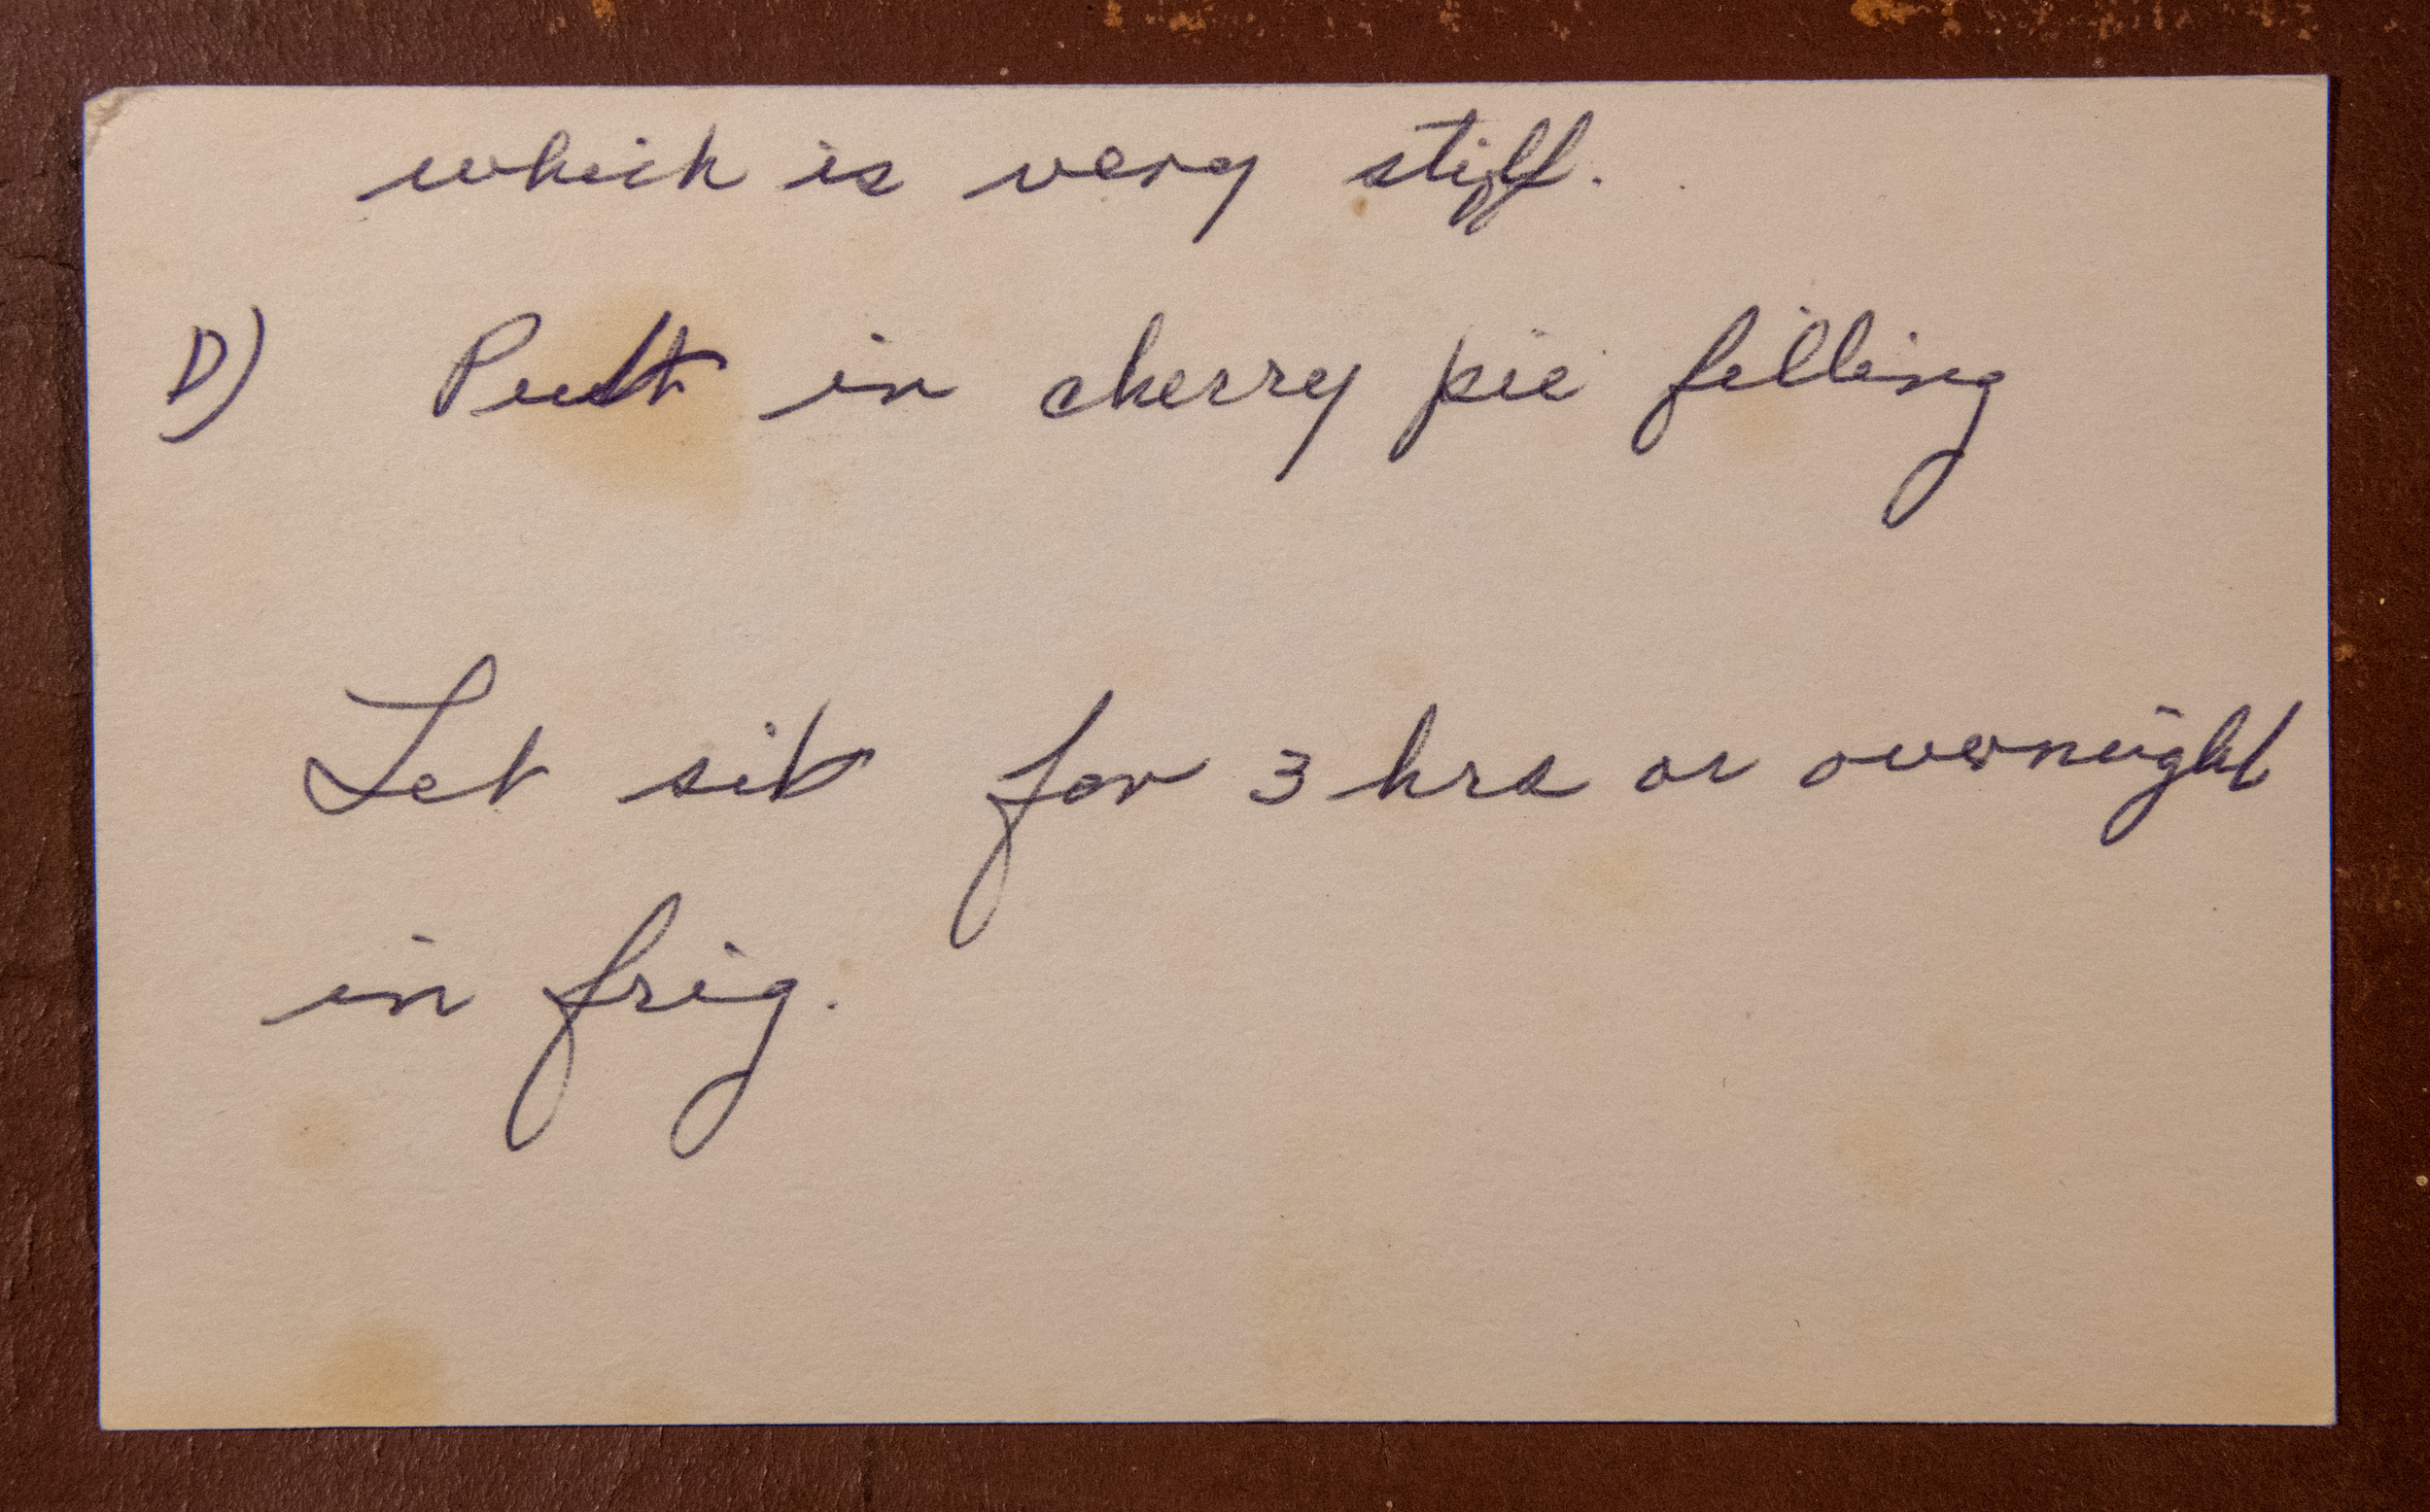 which is very stiff.
D) Put in cherry pie filling
Let sit for 3 hrs or overnight
in frig.